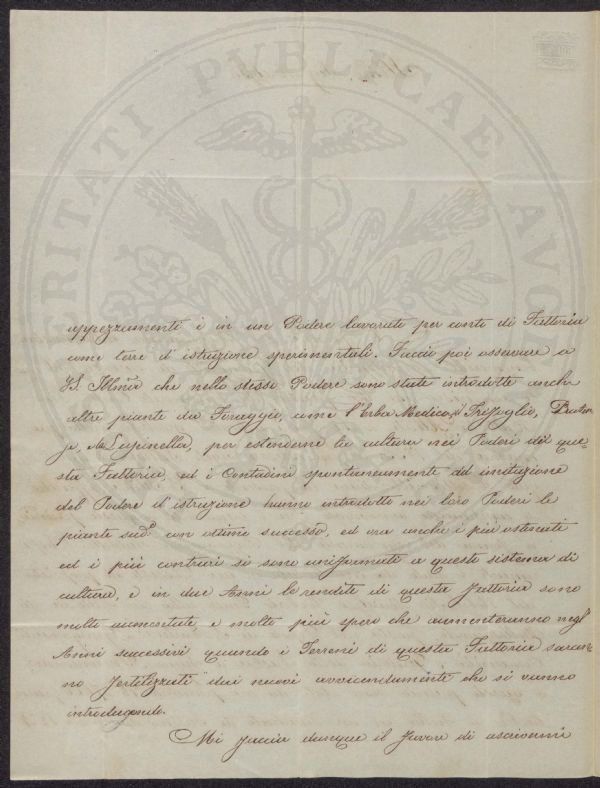 PROSPERITATI PVBLICAE AVG
appezzamenti è in un Podere lavorato per conto di Fattoria
come terre d'istruzione sperimentali. Faccio poi osservare a
VS. Illma che nello stesso Podere sono state introdotte anche
altre piante da Foraggio, come l'Erba Medica, il Trifoglio,
la Lupinella, per estenderne la cultura nei Poderi di que-
sta Fattoria, ed i Contadini spontaneamente ad imitazione
del Podere d'istruzione hanno introdotto nei loro Poderi le
piante sudde con ottimo successo, ed ora anche i più ostinati
ed i più contrari si sono uniformati a questo sistema di
cultura, e in due Anni le rendite di questa Fattoria sono
molto aumentate, e molto più spero che aumenteranno negl'
Anni successivi quando i Terreni di questa Fattoria saran-
no fertilizzati dai nuovi avvicendamenti che si vanno
introducendo.
Mi faccia dunque il favore di ascrivermi